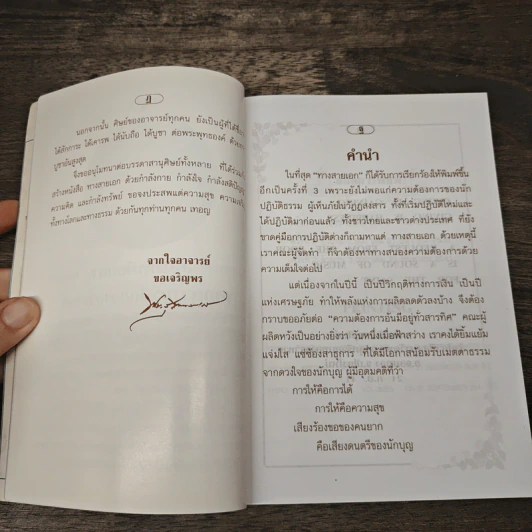 ฎ
นอกจากนั้น ศิษย์ของอาจารย์ทุกคน ยังเป็นผู้ที่ได้
ได้สักการะ ได้เคารพ ได้นับถือ ได้บูชา ต่อพระพุทธองค์ ด้วย
บูชาอันสูงสุด
จึงขออนุโมทนาต่อบรรดาสานุศิษย์ทั้งหลาย ที่ได้ร่วม
สร้างหนังสือ ทางสายเอก ด้วยกำลังกาย กำลังใจ กำลังสติปัญญา
ความคิด และกำลังทรัพย์ ขอจงประสพแต่ความสุข ความ
ทั้งทางโลกและทางธรรม ด้วยกันทุกท่านทุกคน เทอญ
จากใจอาจารย์
ขอเจริญพร
คำนำ
ในที่สุด “ทางสายเอก” ก็ได้รับการเรียกร้องให้พิมพ์ขึ้น
อีกเป็นครั้งที่ 3 เพราะยังไม่พอแก่ความต้องการของนัก
ปฏิบัติธรรม ผู้เห็นภัยในวัฏฏสงสาร ทั้งที่เริ่มปฏิบัติใหม่และ
ได้ปฏิบัติมาก่อนแล้ว ทั้งชาวไทยและชาวต่างประเทศ ที่ยัง
ขาดคู่มือการปฏิบัติต่างก็ถามหาแต่ ทางสายเอก ด้วยเหตุนี้
เราคณะผู้จัดทำ ก็จำต้องหาทางสนองความต้องการด้วย
ความเต็มใจต่อไป
แต่เนื่องจากในปีนี้ เป็นปีวิกฤติทางการเงิน เป็นปี
แห่งเศรษฐภัย ทำให้พลังแห่งการผลิตลดตัวลงบ้าง จึงต้อง
กราบขออภัยต่อ “ความต้องการอันมีอยู่ทั่วสารทิศ” คณะผู้
ผลิตหวังเป็นอย่างยิ่งว่า วันหนึ่งเมื่อฟ้าสว่าง เราคงได้ยิ้มแย้ม
แจ่มใส แซ่ซ้องสาธุการ ที่ได้มีโอกาสน้อมรับเมตตาธรรม
จากดวงใจของนักบุญ ผู้มีอุดมคติที่ว่า
การให้คือการได้
การให้คือความสุข
เสียงร้องขอของคนยาก
คือเสียงดนตรีของนักบุญ